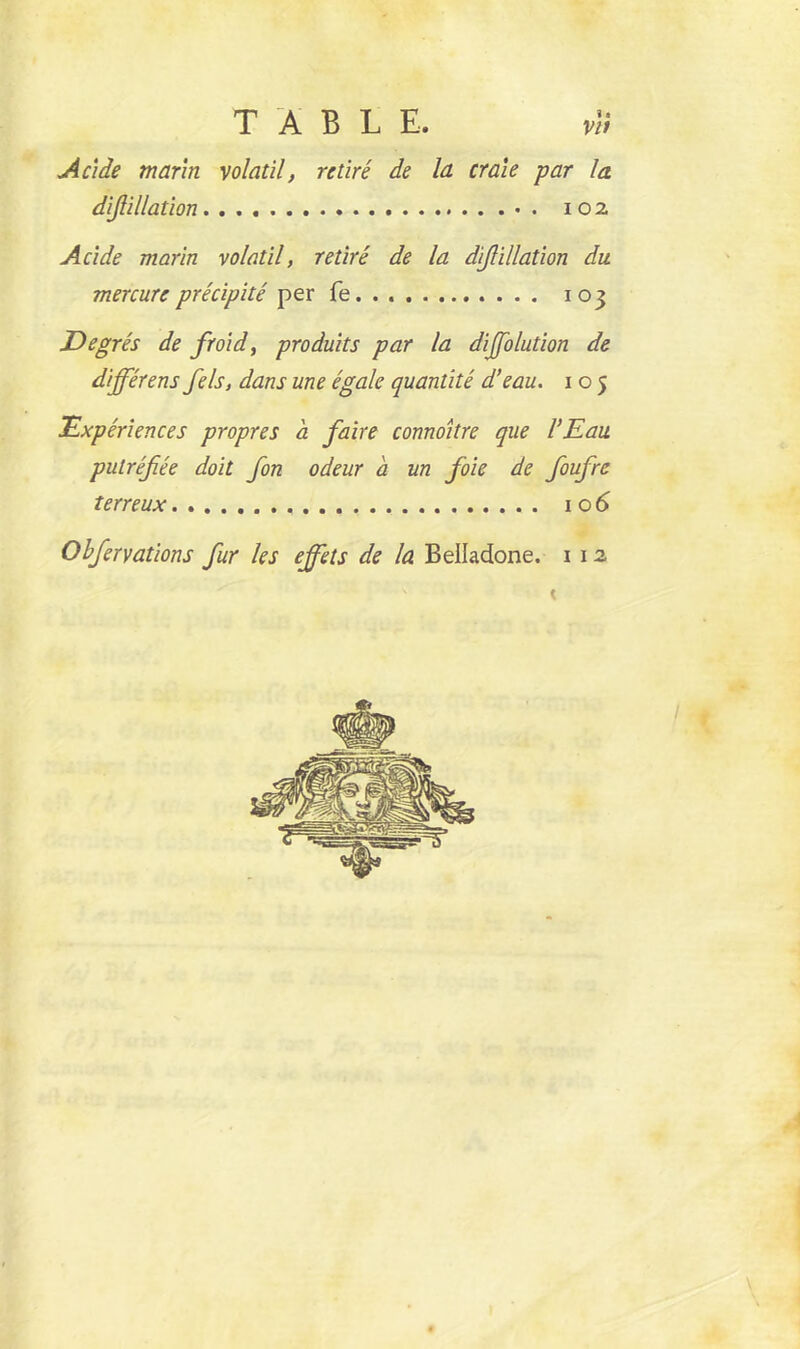 TABLE. vij
Acide marin volatil, retiré de la craie par la
diſtillation........................ 102
Acide marin volatil, retiré de la diſtillation du
mercure précipité per ſe............. 103
Degrés de froid, produits par la diſſolution de
différens ſels, dans une égale quantité d'eau. 105
Expériences propres à faire connoître que l'Eau
putréfiée doit ſon odeur à un foie de ſoufre
terreux.......................... 106
Obſervations ſur les effets de la Belladone. 112